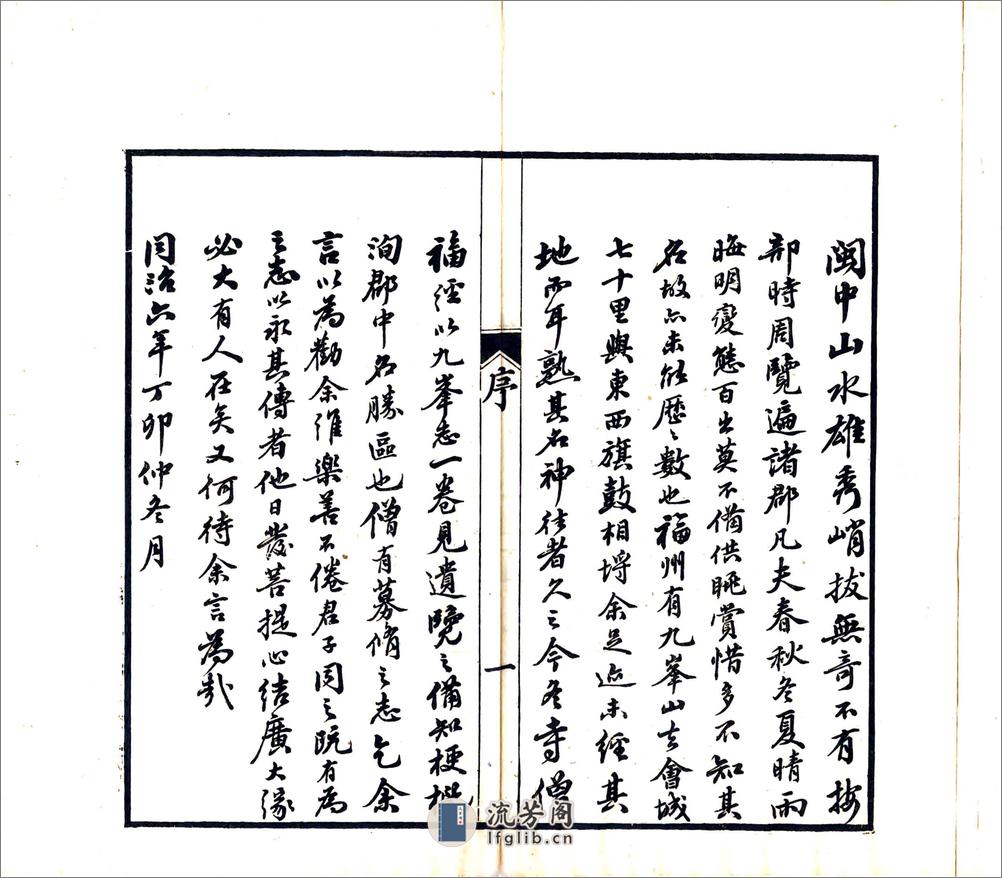 閩中山水雄秀峭拔無奇不有按
部時周覽遍諸郡凡夫春秋冬夏晴雨
晦明變態百出莫不備供眺賞惜多不知其
名故亦未能歷々數也福州有九峯山去會城
七十里與東西旗鼓相埒余足迹未經其
地而耳熟其名神往者久之今冬寺僧
序
一
福經以九峯志一卷見遺覽之備知梗概
洵郡中名勝區也僧有募脩之志乞余
言以為勸余維樂善不倦君子同之既有為
之志以永其傳者他日發菩提心結廣大緣
必大有人在矣又何待余言為哉
同治六年丁卯仲冬月
流芳阁
lfglib.cn